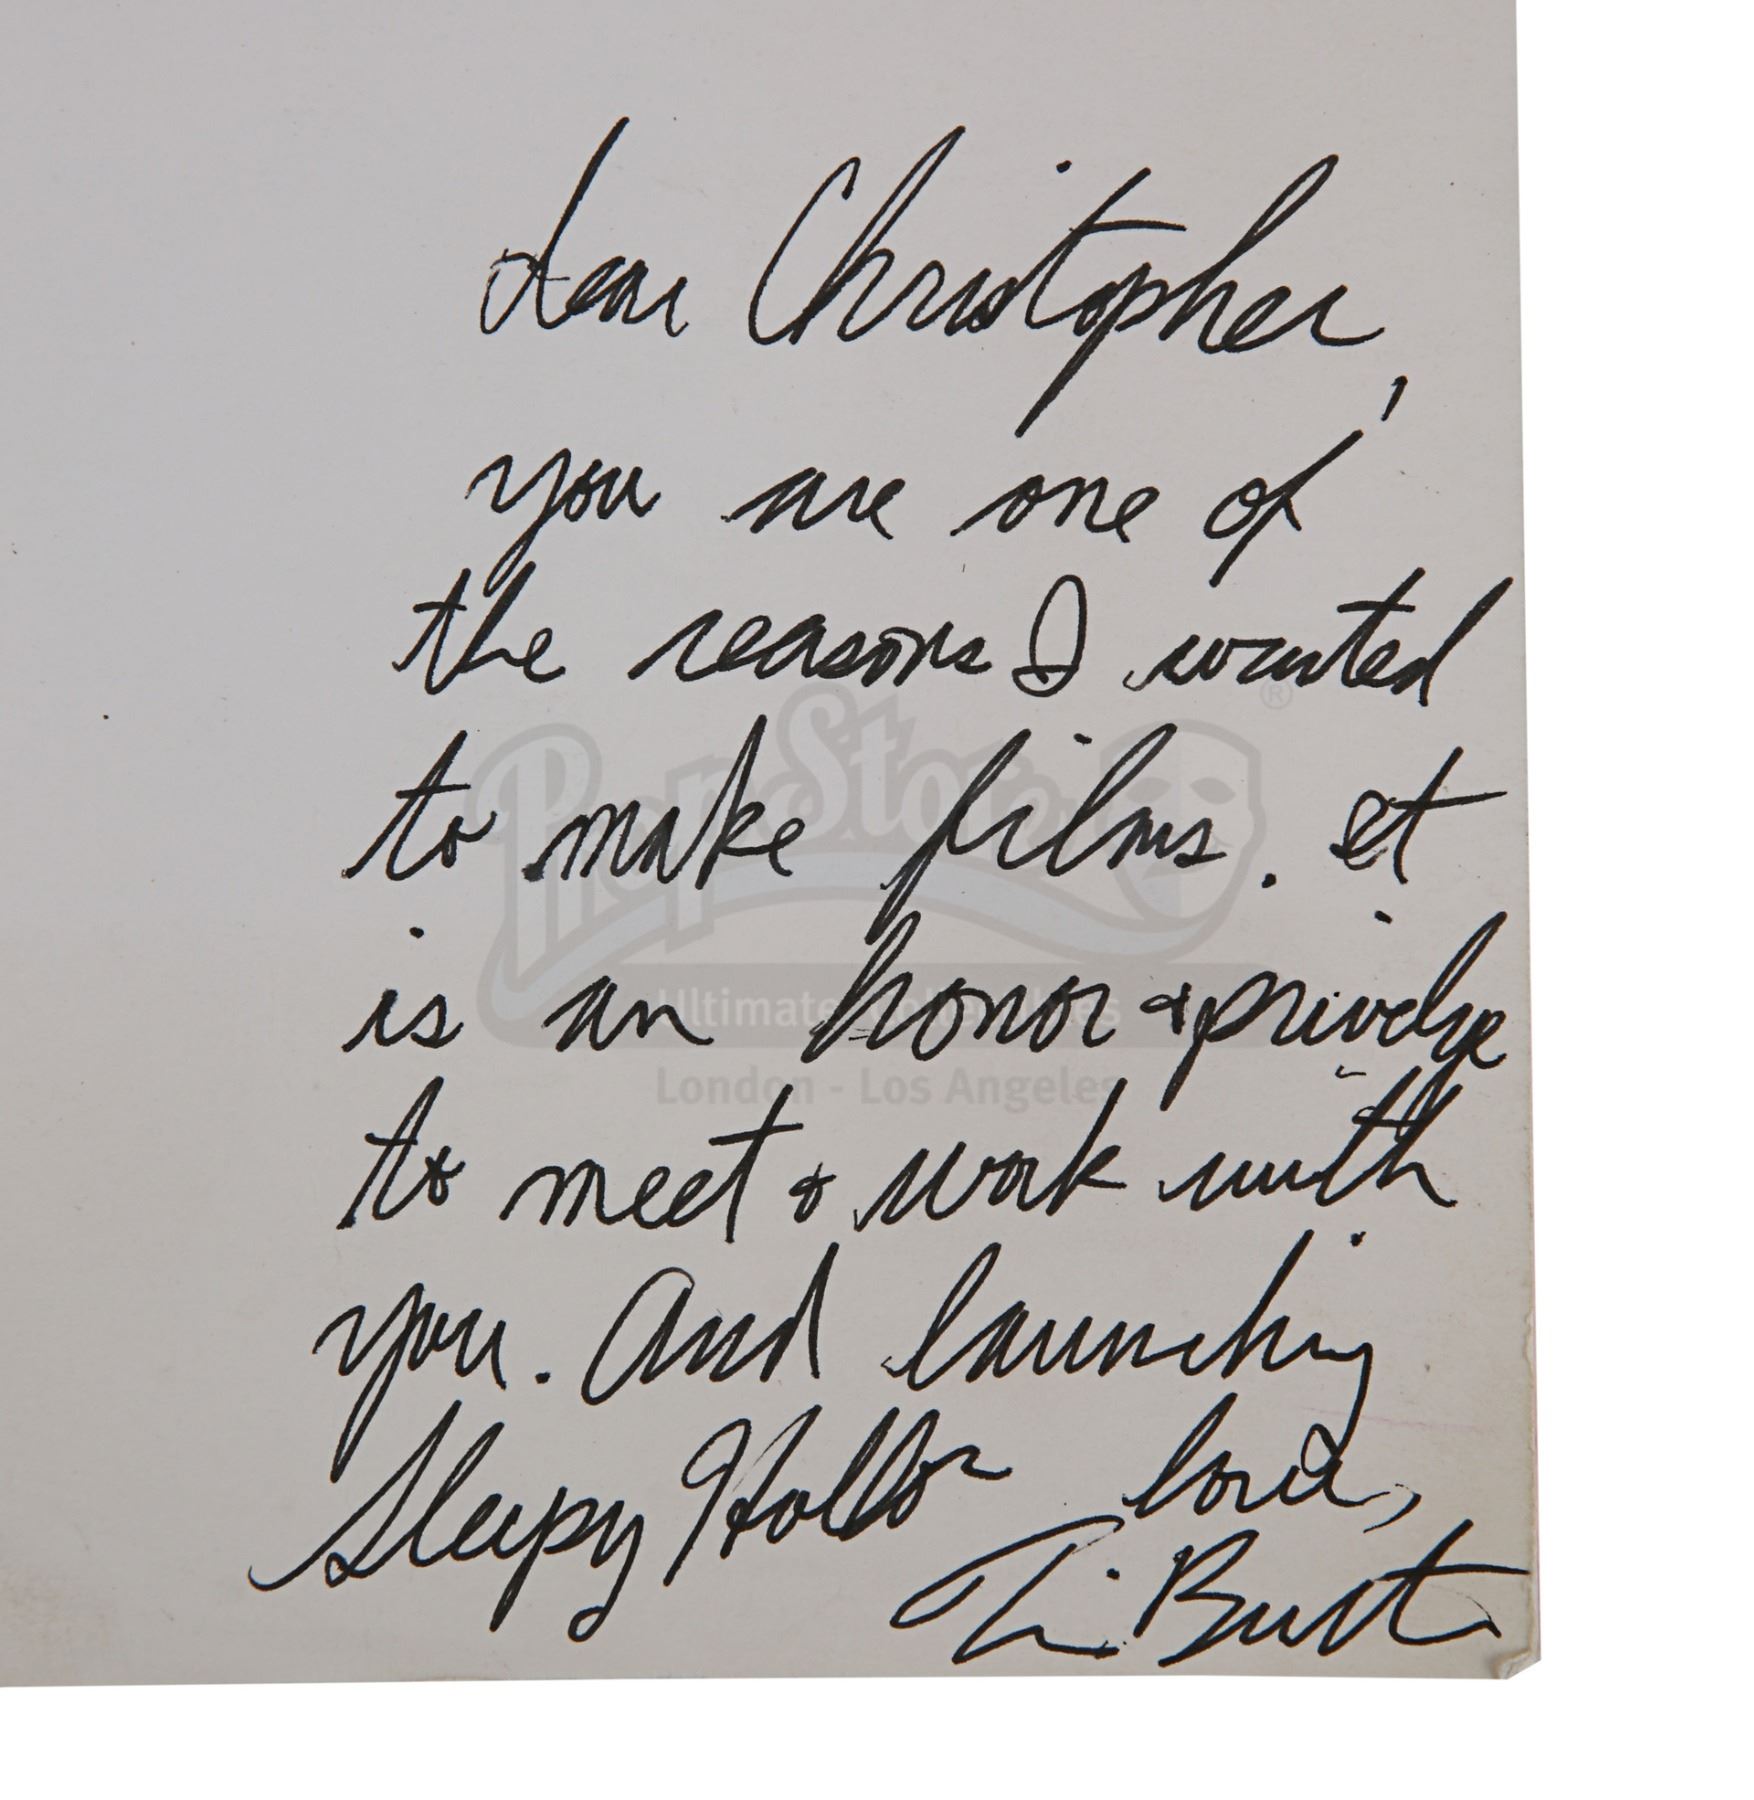 dear Christopher,
you are one of
the reasons I wanted
to make films. it
is an honor + privelge
to meet + work with
you. And launching
Sleepy Hollow love,
Tim Burton
PropStore ®
Ultimate Collectibles
London - Los Angeles